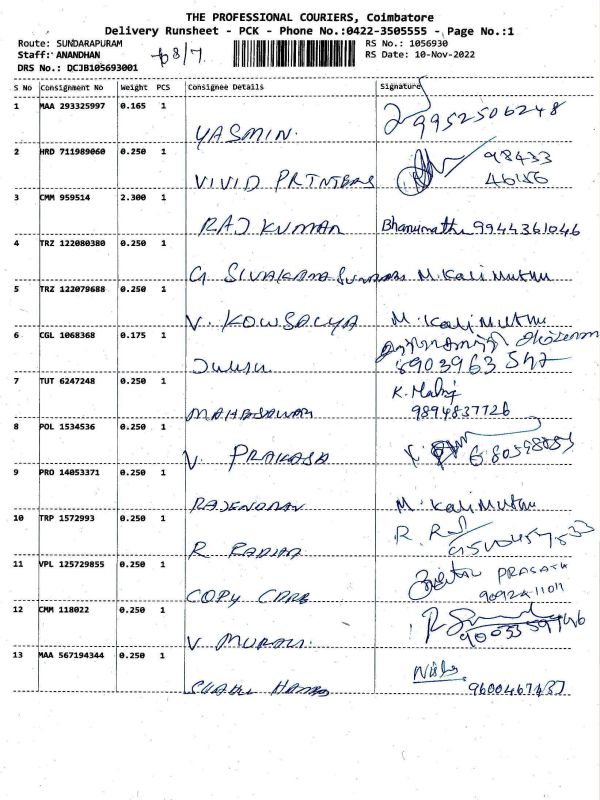 THE PROFESSIONAL COURIERS, Coimbatore
Delivery Runsheet - PCK - Phone No.:0422-3505555 - Page No.:1
Route: SUNDARAPURAM RS No.: 1056930
Staff: ANANDHAN RS Date: 10-Nov-2022
DRS No.: DCJB105693001
S No Consignment No Weight PCS Consignee Details Signature
1 MAA 293325997 0.165 1
YASMIN. 9952506248
2 HRD 711989060 0.250 1 98433
VIVID
3 CMM 959514 2.300 1
RAJ KUMAR Bhanumathi 9944361046
4 TRZ 122080380 0.250 1
G SIVAKAMA M. Kali Muthu
5 TRZ 122079688 0.250 1
V. KOWSALYA M. Kali Muthu
6 CGL 1068368 0.175 1
7 TUT 6247248 0.250 1 K.
9894837726
8 POL 1534536 0.250 1
V. PRAKASA
9 PRO 14053371 0.250 1
RAJENDRAN M. Kali Muthu
10 TRP 1572993 0.250 1
R
11 VPL 125729855 0.250 1 PRASATH
COPY CARE
12 CMM 118022 0.250 1
V MURALI.
13 MAA 567194344 0.250 1